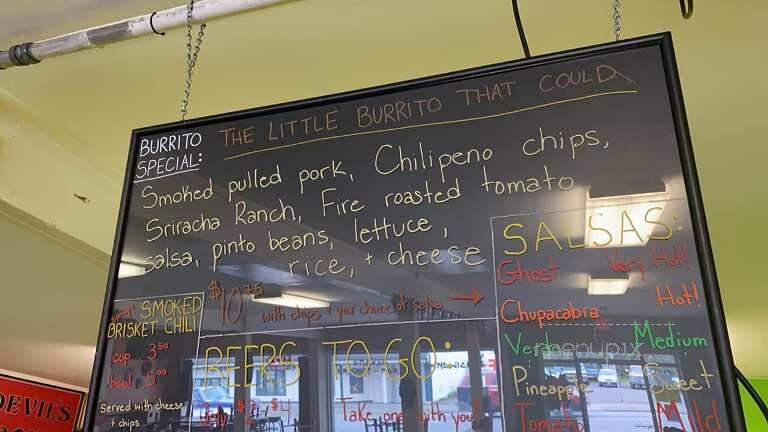 BURRITO SPECIAL:
THE LITTLE BURRITO THAT COULD
Smoked pulled pork, Chilipeno chips,
Sriracha Ranch, Fire roasted tomato
salsa, pinto beans, lettuce,
rice, + cheese
$10.75 with chips + your choice of salsa →
SMOKED
BRISKET CHILI
cup... 3.50
bowl.. 5.00
Served with cheese
+ chips
BEERS TO GO:
$4
Take one with you
SALSAS:
Ghost Very Hot!
Chupacabra Hot!
Verde Medium
Pineapple Sweet
Tomato Mild
menupix
DEVIL'S